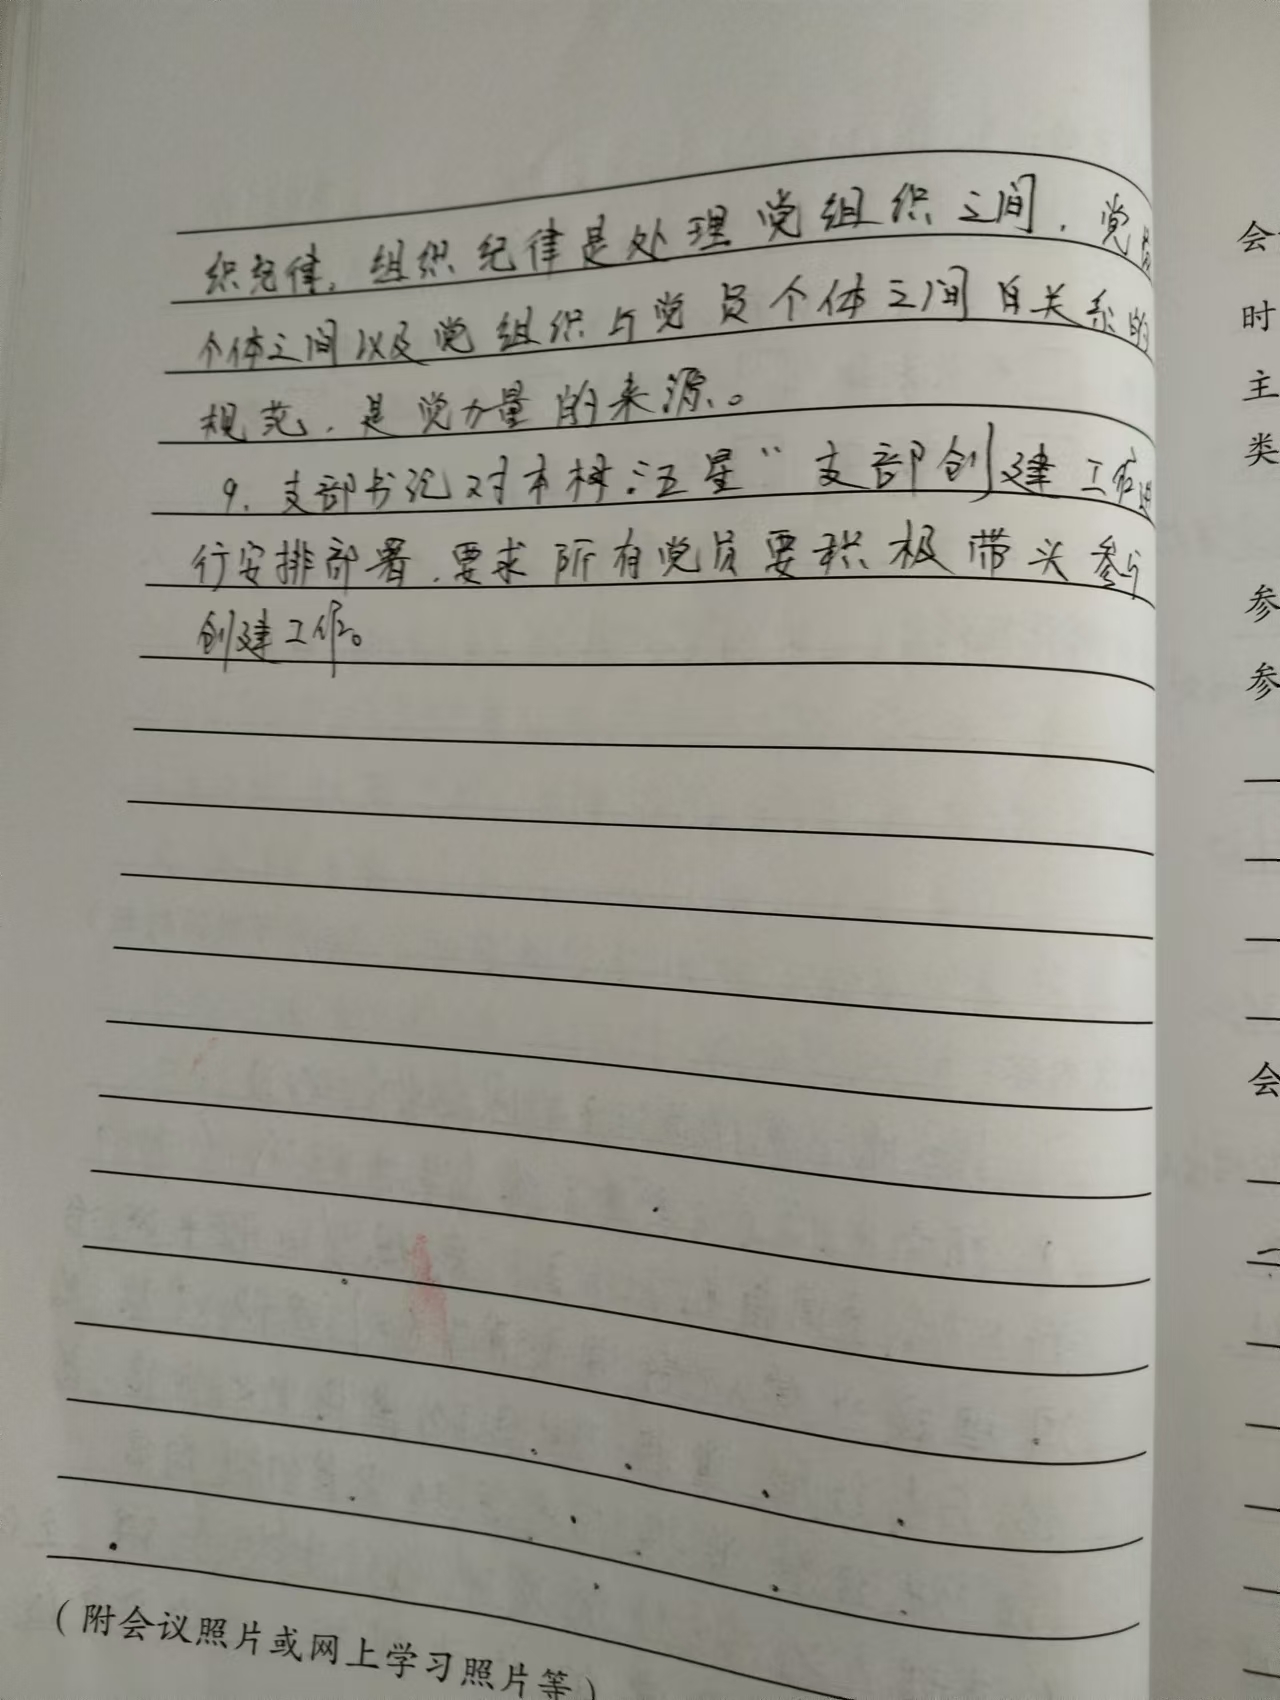 织纪律。组织纪律是处理党组织之间，党员
个体之间以及党组织与党员个体之间自关系的
规范，是党力量的来源。
9. 支部书记对本村“五星”支部创建工作进
行安排部署，要求所有党员要积极带头参与
创建工作。
（附会议照片或网上学习照片等）
会
时
主
类
参
参
会